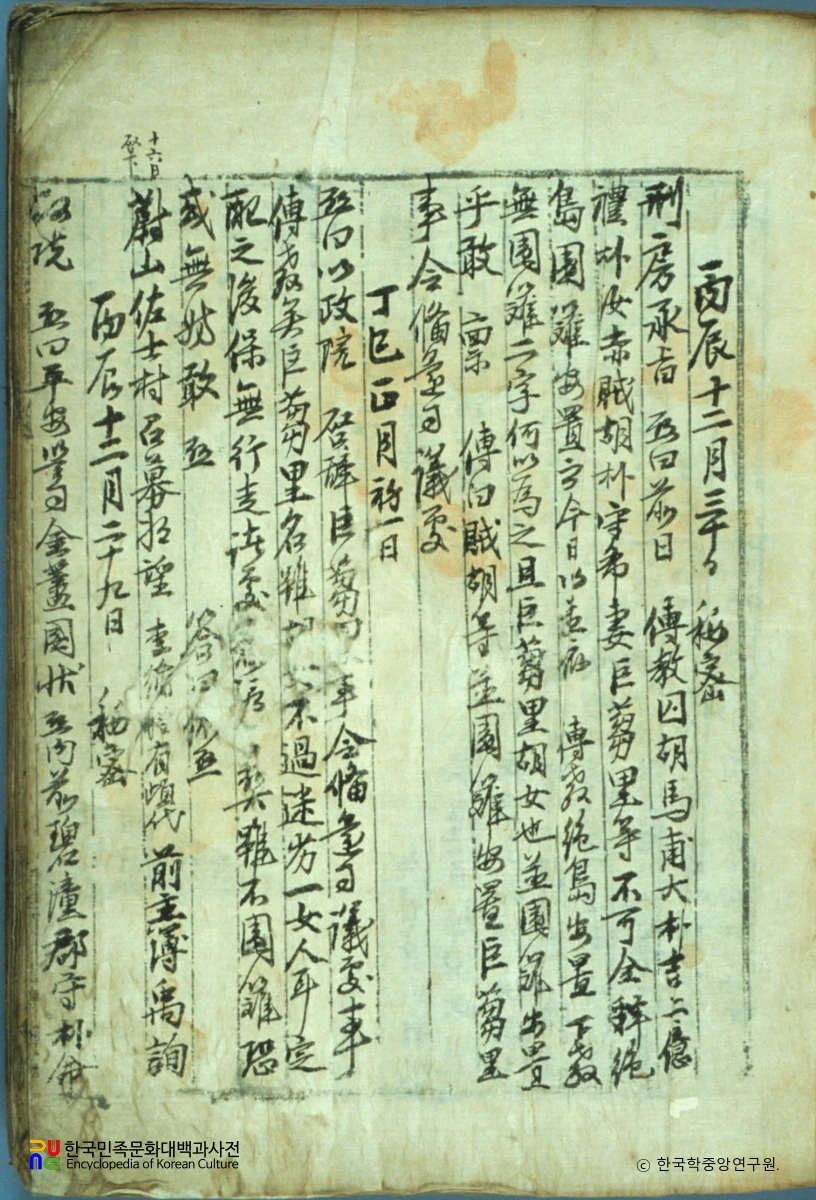 丙辰十二月三十日 秘密
刑房承旨 啓曰前日 傳教囚胡馬甫大朴吉上億
禮朴汝赤賊胡朴守希妻巨蒭里等不可全釋絶
島圍籬安置事今日以 傳教絶島安置下教
無圍籬二字何以爲之且巨蒭里胡女也並圍籬安置
乎敢 稟 傳曰賊胡等並圍籬安置巨蒭里
事令備邊司議處
丁巳正月初一日
啓曰以政院 啓辭巨蒭里事令備邊司議處事
傳教矣巨蒭里名雖 不過迷劣一女人耳定
配之後保無行走 處 矣雖不圍籬恐
或無妨敢啓 答曰依啓
十六日
啓下
蔚山佐士村召募將望 李 有 代 前主簿禹詢
丙辰十二月二十九日 秘密
政院 啓曰平安監司金藎國狀啓內前碧潼郡守朴命
한국민족문화대백과사전
Encyclopedia of Korean Culture
ⓒ 한국학중앙연구원.